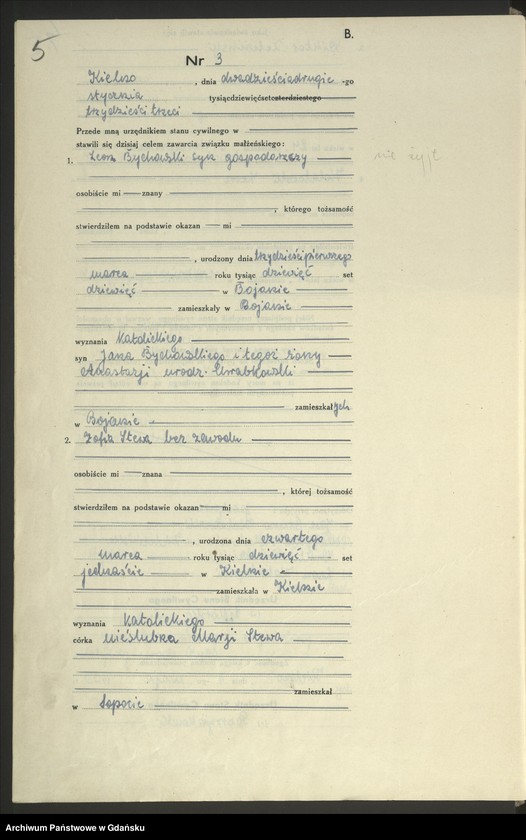 5
B.
Nr 3
Kielno, dnia dwudziestiadrugie -go
stycznia tysiącdziewięćsetczterdziestego
trzydzieści trzeci
Przede mną urzędnikiem stanu cywilnego w
stawili się dzisiaj celem zawarcia związku małżeńskiego:
1. Leon Bychowski syn gospodarzy
nie żyje
osobiście mi znany
, którego tożsamość
stwierdziłem na podstawie okazan mi
, urodzony dnia trzydzieścipierwszego
marca roku tysiąc dziewięć set
dziewięć w Bojanie
zamieszkały w Bojanie
wyznania Katolickiego
syn Jana Bychowskiego i tegoż żony
Anastazji urodz.
zamieszkałych
w Bojanie
2. Zofja Stewa bez zawodu
osobiście mi znana
, której tożsamość
stwierdziłem na podstawie okazan mi
, urodzona dnia czwartego
marca roku tysiąc dziewięć set
jednaście w Kielnie
zamieszkała w Kielnie
wyznania Katolickiego
córka nieślubna Marji Stewa
zamieszkał
w Sopocie
Archiwum Państwowe w Gdańsku